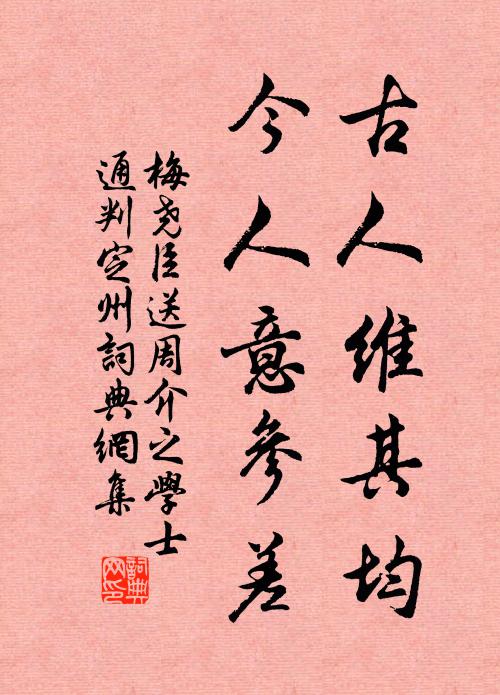 古人維其均
今人意參差
梅尧臣送周介之學士
通判定州詞典網集
詞典网印